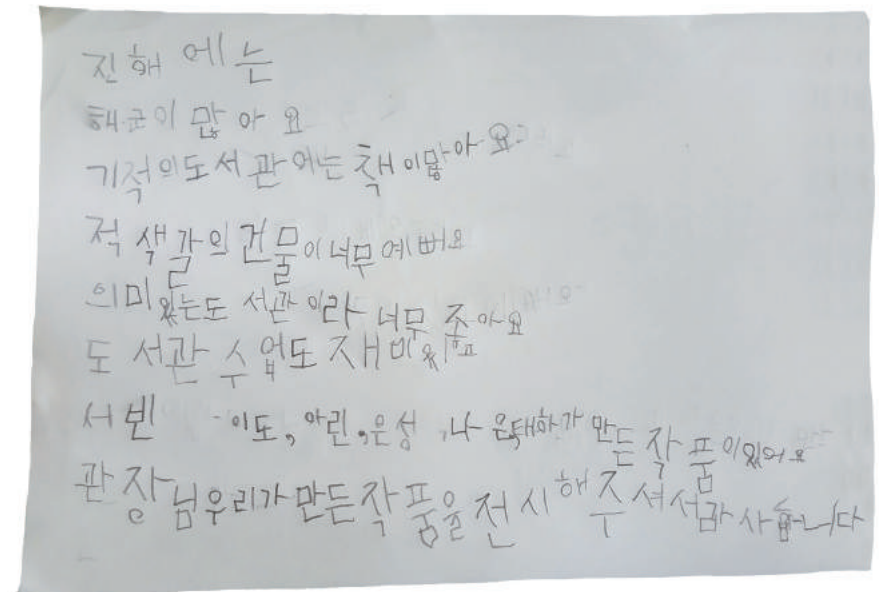 진해에는
해군이 많아요
기적의도서관에는 책이많아요.
적색깔의 건물이너무예뻐요
의미있는도서관이라 너무 좋아요
도서관 수업도 재미있어요
서빈 이도, 아린, 은성, 나 은태하가 만든 작품이있어요
관장님우리가 만든작품을 전시해주셔서감사합니다